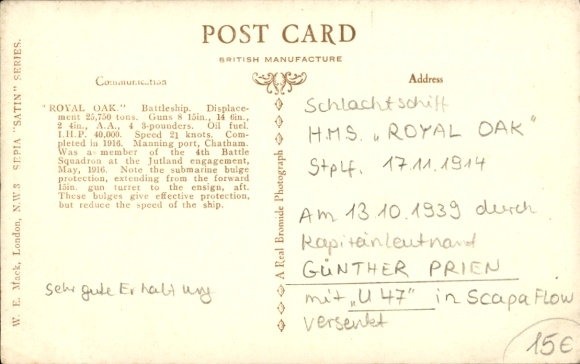 POST CARD
BRITISH MANUFACTURE
Communication
Address
"ROYAL OAK." Battleship. Displace-
ment 25,750 tons. Guns 8 15in., 14 6in.,
2 4in., A.A., 4 3-pounders. Oil fuel.
I.H.P. 40,000. Speed 21 knots. Com-
pleted in 1916. Manning port, Chatham.
Was a member of the 4th Battle
Squadron at the Jutland engagement,
May, 1916. Note the submarine bulge
protection, extending from the forward
15in. gun turret to the ensign, aft.
These bulges give effective protection,
but reduce the speed of the ship.
Sehr gute Erhaltung
W. E. Mack, London, N.W.3 SEPIA "SATIN" SERIES.
A Real Bromide Photograph
Schlachtschiff
H.M.S. „ROYAL OAK"
Stplf. 17.11.1914
Am 13.10.1939 durch
Kapitänleutnant
GÜNTHER PRIEN
mit „U 47" in Scapa Flow
versenkt
15€